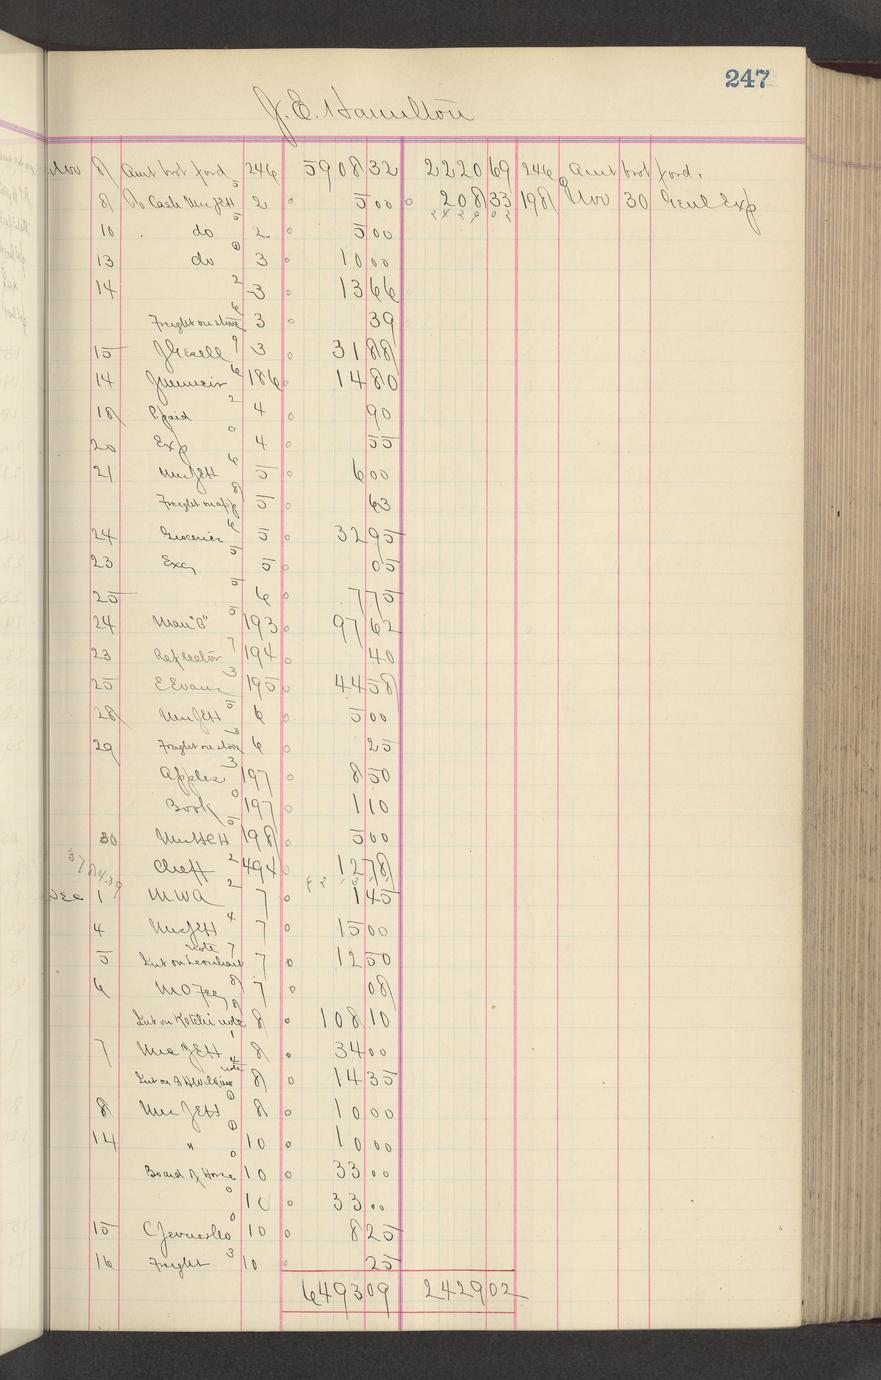 247
J. E. Hamilton
Nov 8 Amt brot ford 246 5908 32 2220 69 246 Amt brot ford.
8 To Cash Mrs JEH 2 5 00 208 33 198 Nov 30 Genl Exp
2429 02
10 do 2 5 00
13 do 3 10 00
14 3 13 66
Freight on stove 3 39
15 3 31 88
14 186 14 80
18 paid 4 90
20 Exp 4 55
21 Mrs JEH 5 6 00
Freight on app 5 63
24 Groceries 5 32 95
23 Exc 5 05
25 6 7 75
24 Man "B" 193 97 62
23 Reflector 194 40
25 E Evans 195 44 58
28 Mrs JEH 6 5 00
29 Freight on stove 6 25
Apples 197 8 50
Book 197 1 10
30 Mrs JEH 198 5 00
Cheff 494 12 78
Dec 1 MWA 7 1 45
4 Mrs JEH 7 15 00
5 Int on Leonhart note 7 12 50
6 M O Fee 7 08
Int on note 8 108 10
7 Mrs JEH 8 34 00
Int on B H Wilkins note 8 14 35
8 Mrs JEH 8 10 00
14 " 10 10 00
Board of Horse 10 33 00
10 33 00
15 C 10 8 25
16 Freight 10 25
6493 09 2429 02